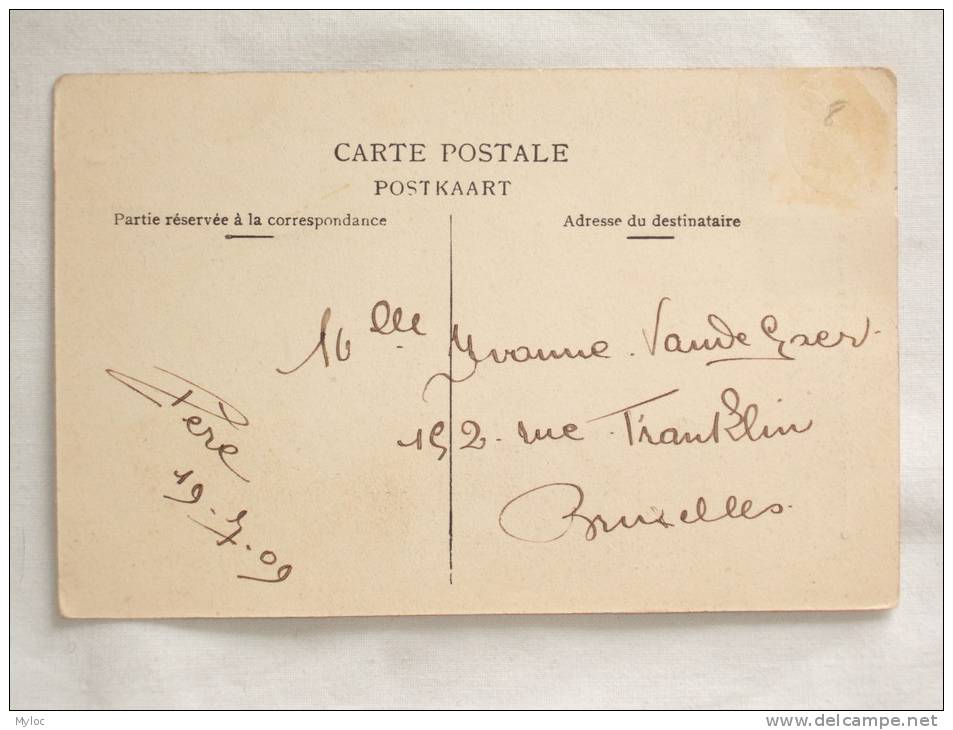 8
CARTE POSTALE
POSTKAART
Partie réservée à la correspondance
Adresse du destinataire
Mlle Yvonne
192 rue Franklin
Bruxelles
Père
19.7.09
Myloc
delcampe.net